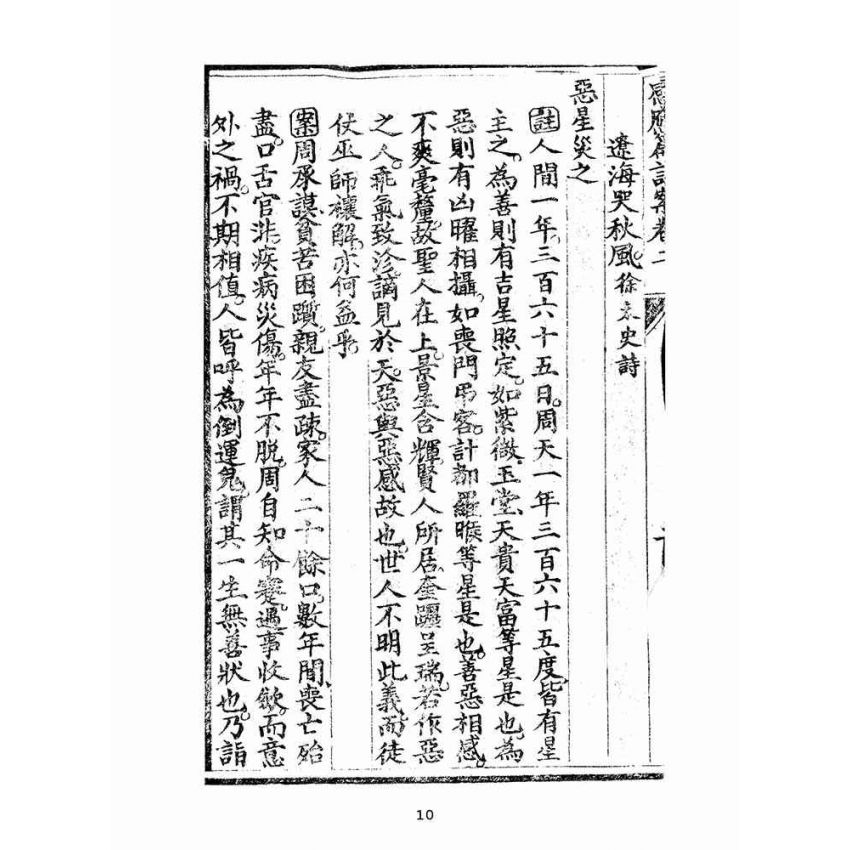 感應篇註案卷二
遼海哭秋風。徐太史詩
惡星災之
註人間一年。三百六十五日。周天一年三百六十五度。皆有星
主之。為善則有吉星照定。如紫微玉堂天貴天富等星是也。為
惡則有凶曜相攝。如喪門吊客計都羅睺等星是也。善惡相感。
不爽毫釐。故聖人在上。景星含輝。賢人所居。奎躔呈瑞。若作惡
之人。乖氣致沴。謫見於天。惡與惡感故也。世人不明此義。而徒
仗巫師禳解。亦何益乎。
案周承謨貧苦困躓。親友盡疎。家人二十餘口。數年間。喪亡殆
盡。口舌官非。疾病災傷。年年不脫。周自知命蹇。遇事收歛。而意
外之禍。不期相值。人皆呼為倒運鬼。謂其一生無善狀也。乃詣
10